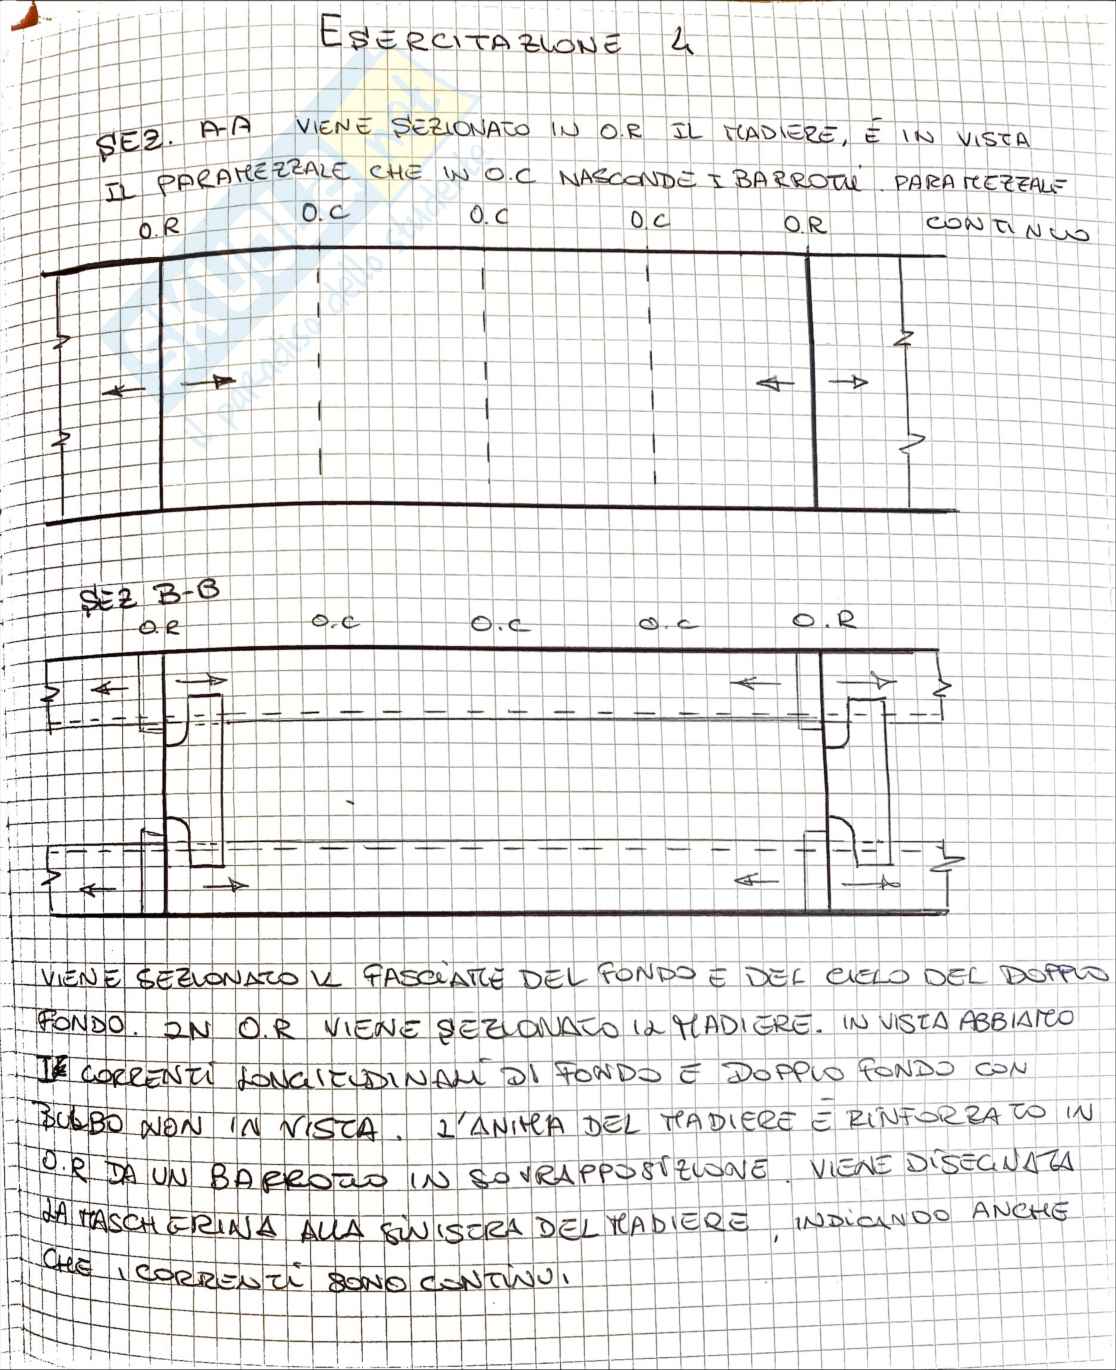 ESERCITAZIONE 4
SEZ. A-A VIENE SEZIONATO IN O.R IL MADIERE, È IN VISTA
IL PARAMEZZALE CHE IN O.C NASCONDE I BARROTI. PARAMEZZALE
CONTINUO
O.R O.C O.C O.C O.R
SEZ B-B
O.R O.C O.C O.C O.R
VIENE SEZIONATO IL FASCIAME DEL FONDO E DEL CIELO DEL DOPPIO
FONDO. IN O.R VIENE SEZIONATO IL MADIERE. IN VISTA ABBIAMO
I CORRENTI LONGITUDINALI DI FONDO E DOPPIO FONDO CON
BULBO NON IN VISTA. L'ANIMA DEL MADIERE È RINFORZATO IN
O.R DA UN BARROTTO IN SOVRAPPOSIZIONE. VIENE DISEGNATA
LA MASCHERINA ALLA SINISTRA DEL MADIERE, INDICANDO ANCHE
CHE I CORRENTI SONO CONTINUI
SKUOLA.net
il paradiso dello studente